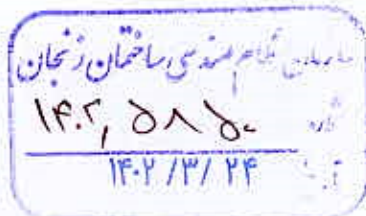 سازمان نظام مهندسی ساختمان زنجان
شماره ۱۴۰۲,۵۸۵۰
۱۴۰۲/۳/۲۴